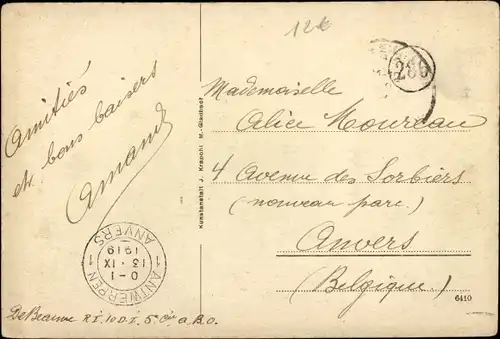 12€
286
Amitiés
et bons baisers
Amand
Mademoiselle
Alice Moureau
4 Avenue des Sorbiers
(nouveau parc.)
Anvers
(Belgique.)
Kunstanstalt J. Krapohl M.-Gladbach
1 ANTWERPEN 1
0-1
13 · IX
1919
ANVERS
De Beauve R.I. 10 D.I. 5e Cie a.B.O.
6410